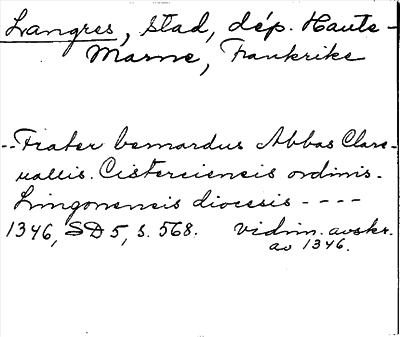 Langres, stad, dép. Haute-
Marne, Frankrike
--Frater bernardus Abbas Clare-
uallis. Cisterciensis ordinis.
Lingonensis diocesis ----
1346, SD 5, s. 568. vidim. avskr.
av 1346.